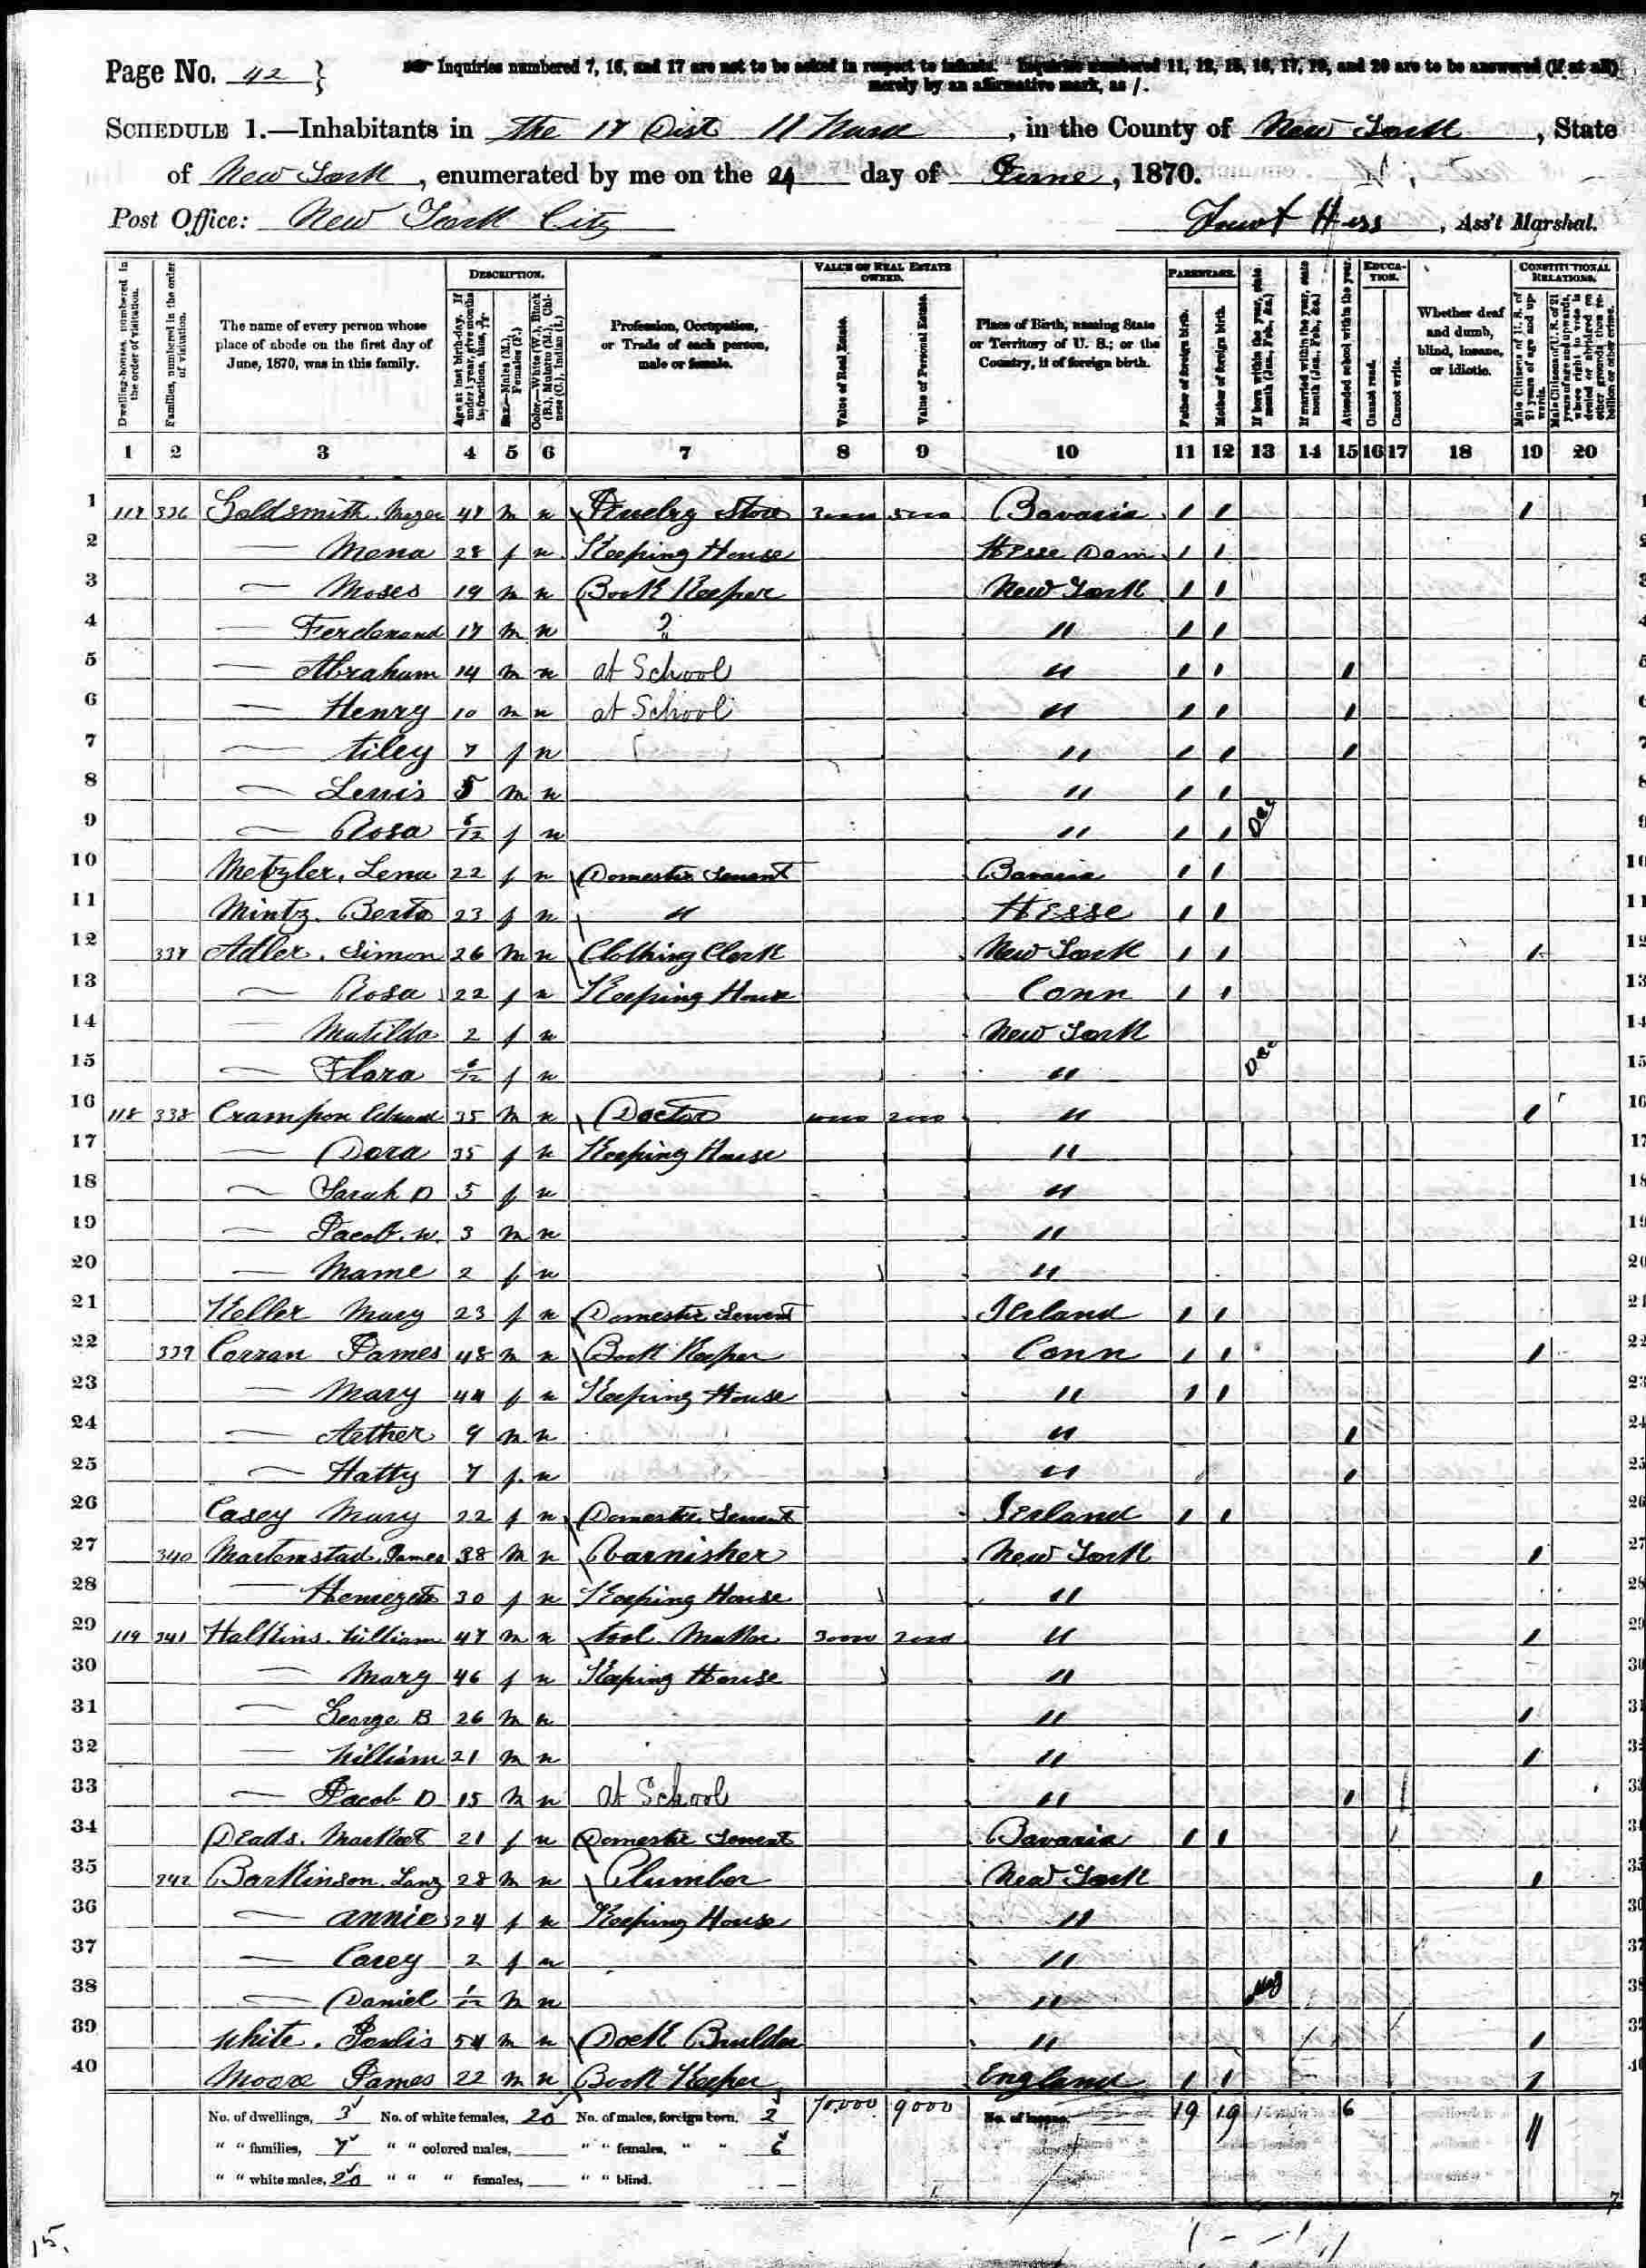 Page No. 42 }
Inquiries numbered 7, 16, and 17 are not to be asked in respect to infants. Inquiries numbered 11, 12, 15, 16, 17, 19, and 20 are to be answered (if at all)
merely by an affirmative mark, as /.
SCHEDULE 1.—Inhabitants in the 17 Dist 11 Ward, in the County of New York, State
of New York, enumerated by me on the 24 day of June, 1870.
Post Office: New York City Hess, Ass't Marshal.
DESCRIPTION. VALUE OF REAL ESTATE OWNED. PARENTAGE. EDUCATION. CONSTITUTIONAL RELATIONS.
Dwelling-houses, numbered in the order of visitation.
Families, numbered in the order of visitation.
The name of every person whose place of abode on the first day of June, 1870, was in this family.
Age at last birth-day. If under 1 year, give months in fractions, thus, 3/12
Sex.—Males (M.), Females (F.)
Color.—White (W.), Black (B.), Mulatto (M.), Chinese (C.), Indian (I.)
Profession, Occupation, or Trade of each person, male or female.
Value of Real Estate.
Value of Personal Estate.
Place of Birth, naming State or Territory of U. S.; or the Country, if of foreign birth.
Father of foreign birth.
Mother of foreign birth.
If born within the year, state month (Jan., Feb., &c.)
If married within the year, state month (Jan., Feb., &c.)
Attended school within the year.
Cannot read.
Cannot write.
Whether deaf and dumb, blind, insane, or idiotic.
Male Citizens of U. S. of 21 years of age and upwards.
Male Citizens of U. S. of 21 years of age and upwards, whose right to vote is denied or abridged on other grounds than rebellion or other crime.
1 2 3 4 5 6 7 8 9 10 11 12 13 14 15 16 17 18 19 20
1 117 336 Goldsmith, Mayer 48 m w Jewelry Store 30000 5000 Bavaria 1 1 1 1
2 — Mena 28 f w Keeping House Hesse Darm 1 1 2
3 — Moses 19 m w Book Keeper New York 1 1 3
4 — Ferdenand 17 m w ? " 1 1 4
5 — Abraham 14 m w at School " 1 1 1 5
6 — Henry 10 m w at School " 1 1 1 6
7 — tiley 7 f w " 1 1 1 7
8 — Lewis 5 m w " 1 1 8
9 — Rosa 6/12 f w " 1 1 Dec 9
10 Metzler, Lena 22 f w Domestic Servant Bavaria 1 1 10
11 Mintz, Berta 23 f w " Hesse 1 1 11
12 337 Adler, Simon 26 m w Clothing Clerk New York 1 1 1 12
13 — Rosa 22 f w Keeping House Conn 1 1 13
14 — Matilda 2 f w New York 14
15 — Flora 6/12 f w " Dec 15
16 118 338 Crampon Edward 35 m w Doctor 10000 2000 " 1 16
17 — Dora 35 f w Keeping House " 17
18 — Sarah D 5 f w " 18
19 — Jacob. W. 3 m w " 19
20 — Mame 2 f w " 20
21 Keller Mary 23 f w Domestic Servent Ireland 1 1 21
22 339 Corran James 48 m w Book Keeper Conn 1 1 1 22
23 — Mary 44 f w Keeping House " 1 1 23
24 — Aether 9 m w " 1 24
25 — Hatty 7 f w " 1 25
26 Casey Mary 22 f w Domestic Servent Ireland 1 1 26
27 340 Martenstad, James 38 m w Varnisher New York 1 27
28 — Heniezett 30 f w Keeping House " 28
29 119 341 Halkins, William 47 m w tool Maker 30000 2000 " 1 29
30 — Mary 46 f w Keeping House " 30
31 — George B 26 m w " 1 31
32 — William 21 m w " 1 32
33 — Jacob D 15 m w at School " 1 33
34 Deads, 21 f w Domestic Servent Bavaria 1 1 34
35 342 Barkinson, 28 m w Plumber New York 1 35
36 — Annie 24 f w Keeping House " 36
37 — Carey 2 f w " 37
38 — Daniel 1/12 m w " May 38
39 White, 54 m w Dock Builder " 1 39
40 Moore James 22 m w Book Keeper England 1 1 1 40
No. of dwellings, 3 No. of white females, 20 No. of males, foreign born, 2 70,000 9000 No. of insane, 19 19 6 11
" " families, 7 " " colored males, " " females, " " 6
" " white males, 20 " " " females, " " blind.
15.